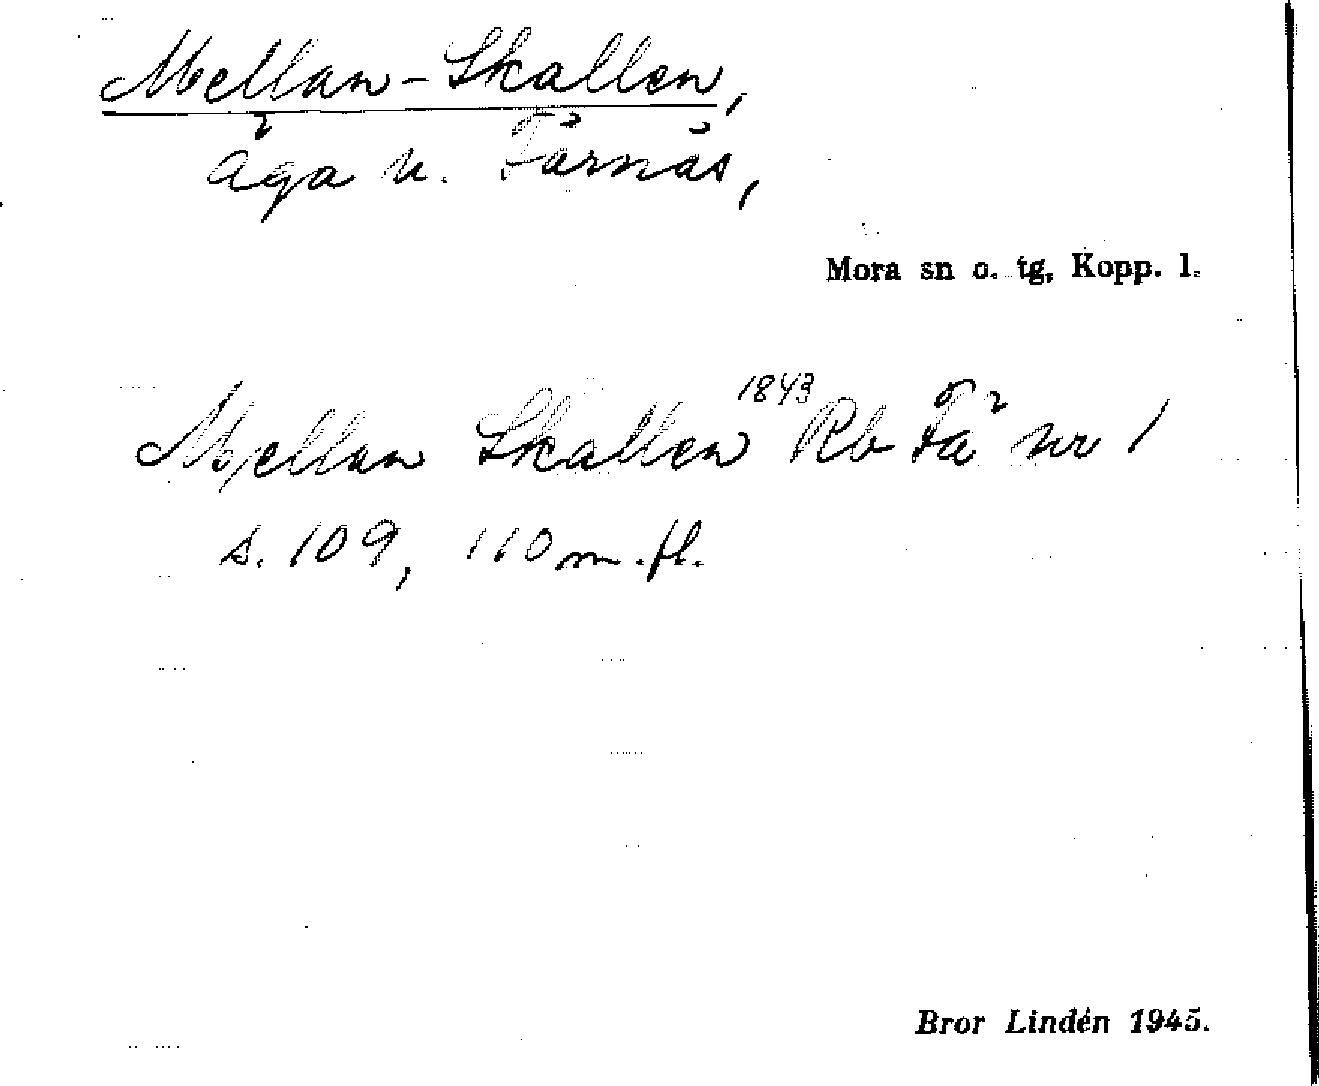 Mellan-Skallen,
äga u. Färnäs,
Mora sn o. tg, Kopp. l.
Mellan Skallen 1843 Rb Fä nr 1
s. 109, 110 m.fl.
Bror Lindén 1945.